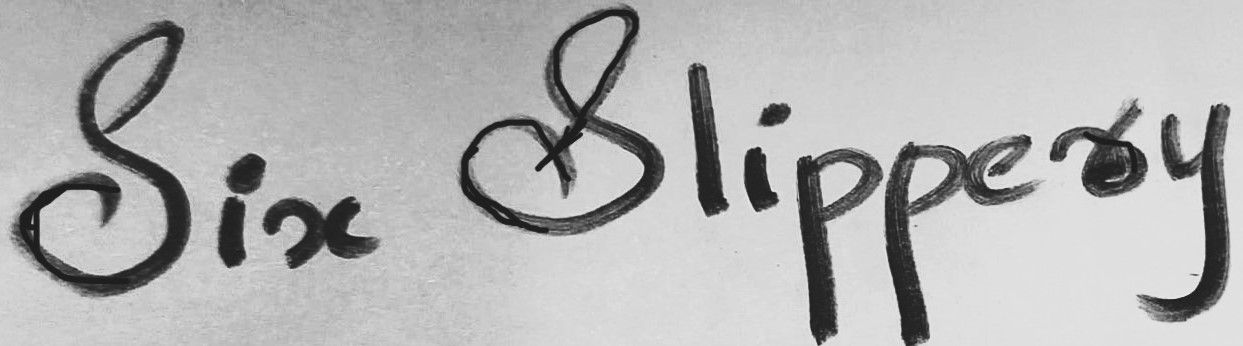 Six Slippery